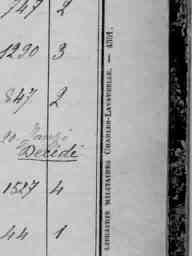 747 2
1290 3
847 2
Décédé
1527 4
44 1
LIBRAIRIE MILITAIRE CHARLES-LAVAUZELLE. — 4351.